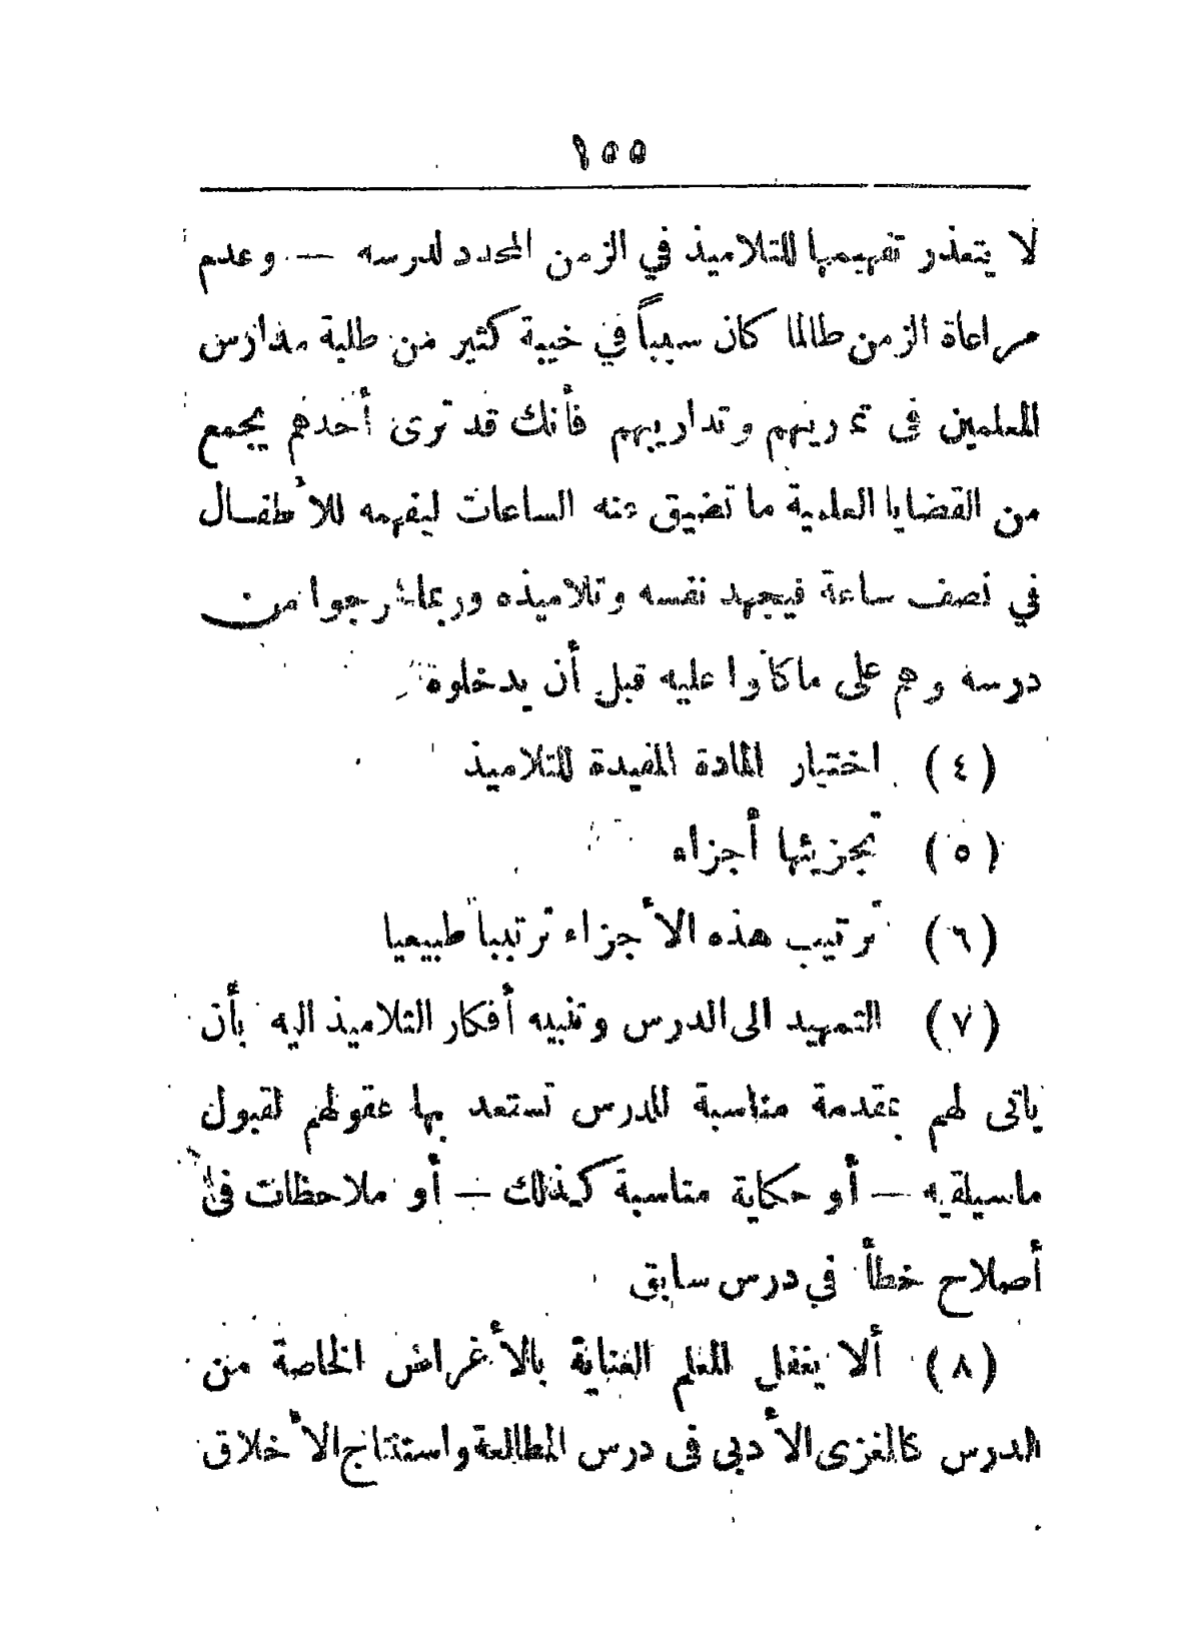 ١٥٥
لا يتعذر تفهيمها للتلاميذ في الزمن المحدد لدرسه — وعدم
مراعاة الزمن طالما كان سبباً في خيبة كثير من طلبة مدارس
المعلمين فى تمرينهم وتداريبهم فأنك قد ترى أحدهم يجمع
من القضايا العلمية ما تضيق عنه الساعات ليفهمه للأطفال
في نصف ساعة فيجهد نفسه وتلاميذه وربما خرجوا من
درسه وهم على ما كانوا عليه قبل أن يدخلوه
(٤) اختيار المادة المفيدة للتلاميذ
(٥) تجزيئها أجزاء
(٦) ترتيب هذه الأجزاء ترتيباً طبيعيا
(٧) التمهيد الى الدرس وتنبيه أفكار التلاميذ اليه بأن
يأتى لهم بمقدمة مناسبة للدرس تستعد بها عقولهم لقبول
ماسيلقيه — أو حكاية مناسبة كذلك — أو ملاحظات فى
أصلاح خطأ في درس سابق
(٨) ألا يغفل المعلم العناية بالأغراض الخاصة من
الدرس كالمغزى الأدبى فى درس المطالعة واستنتاج الأخلاق